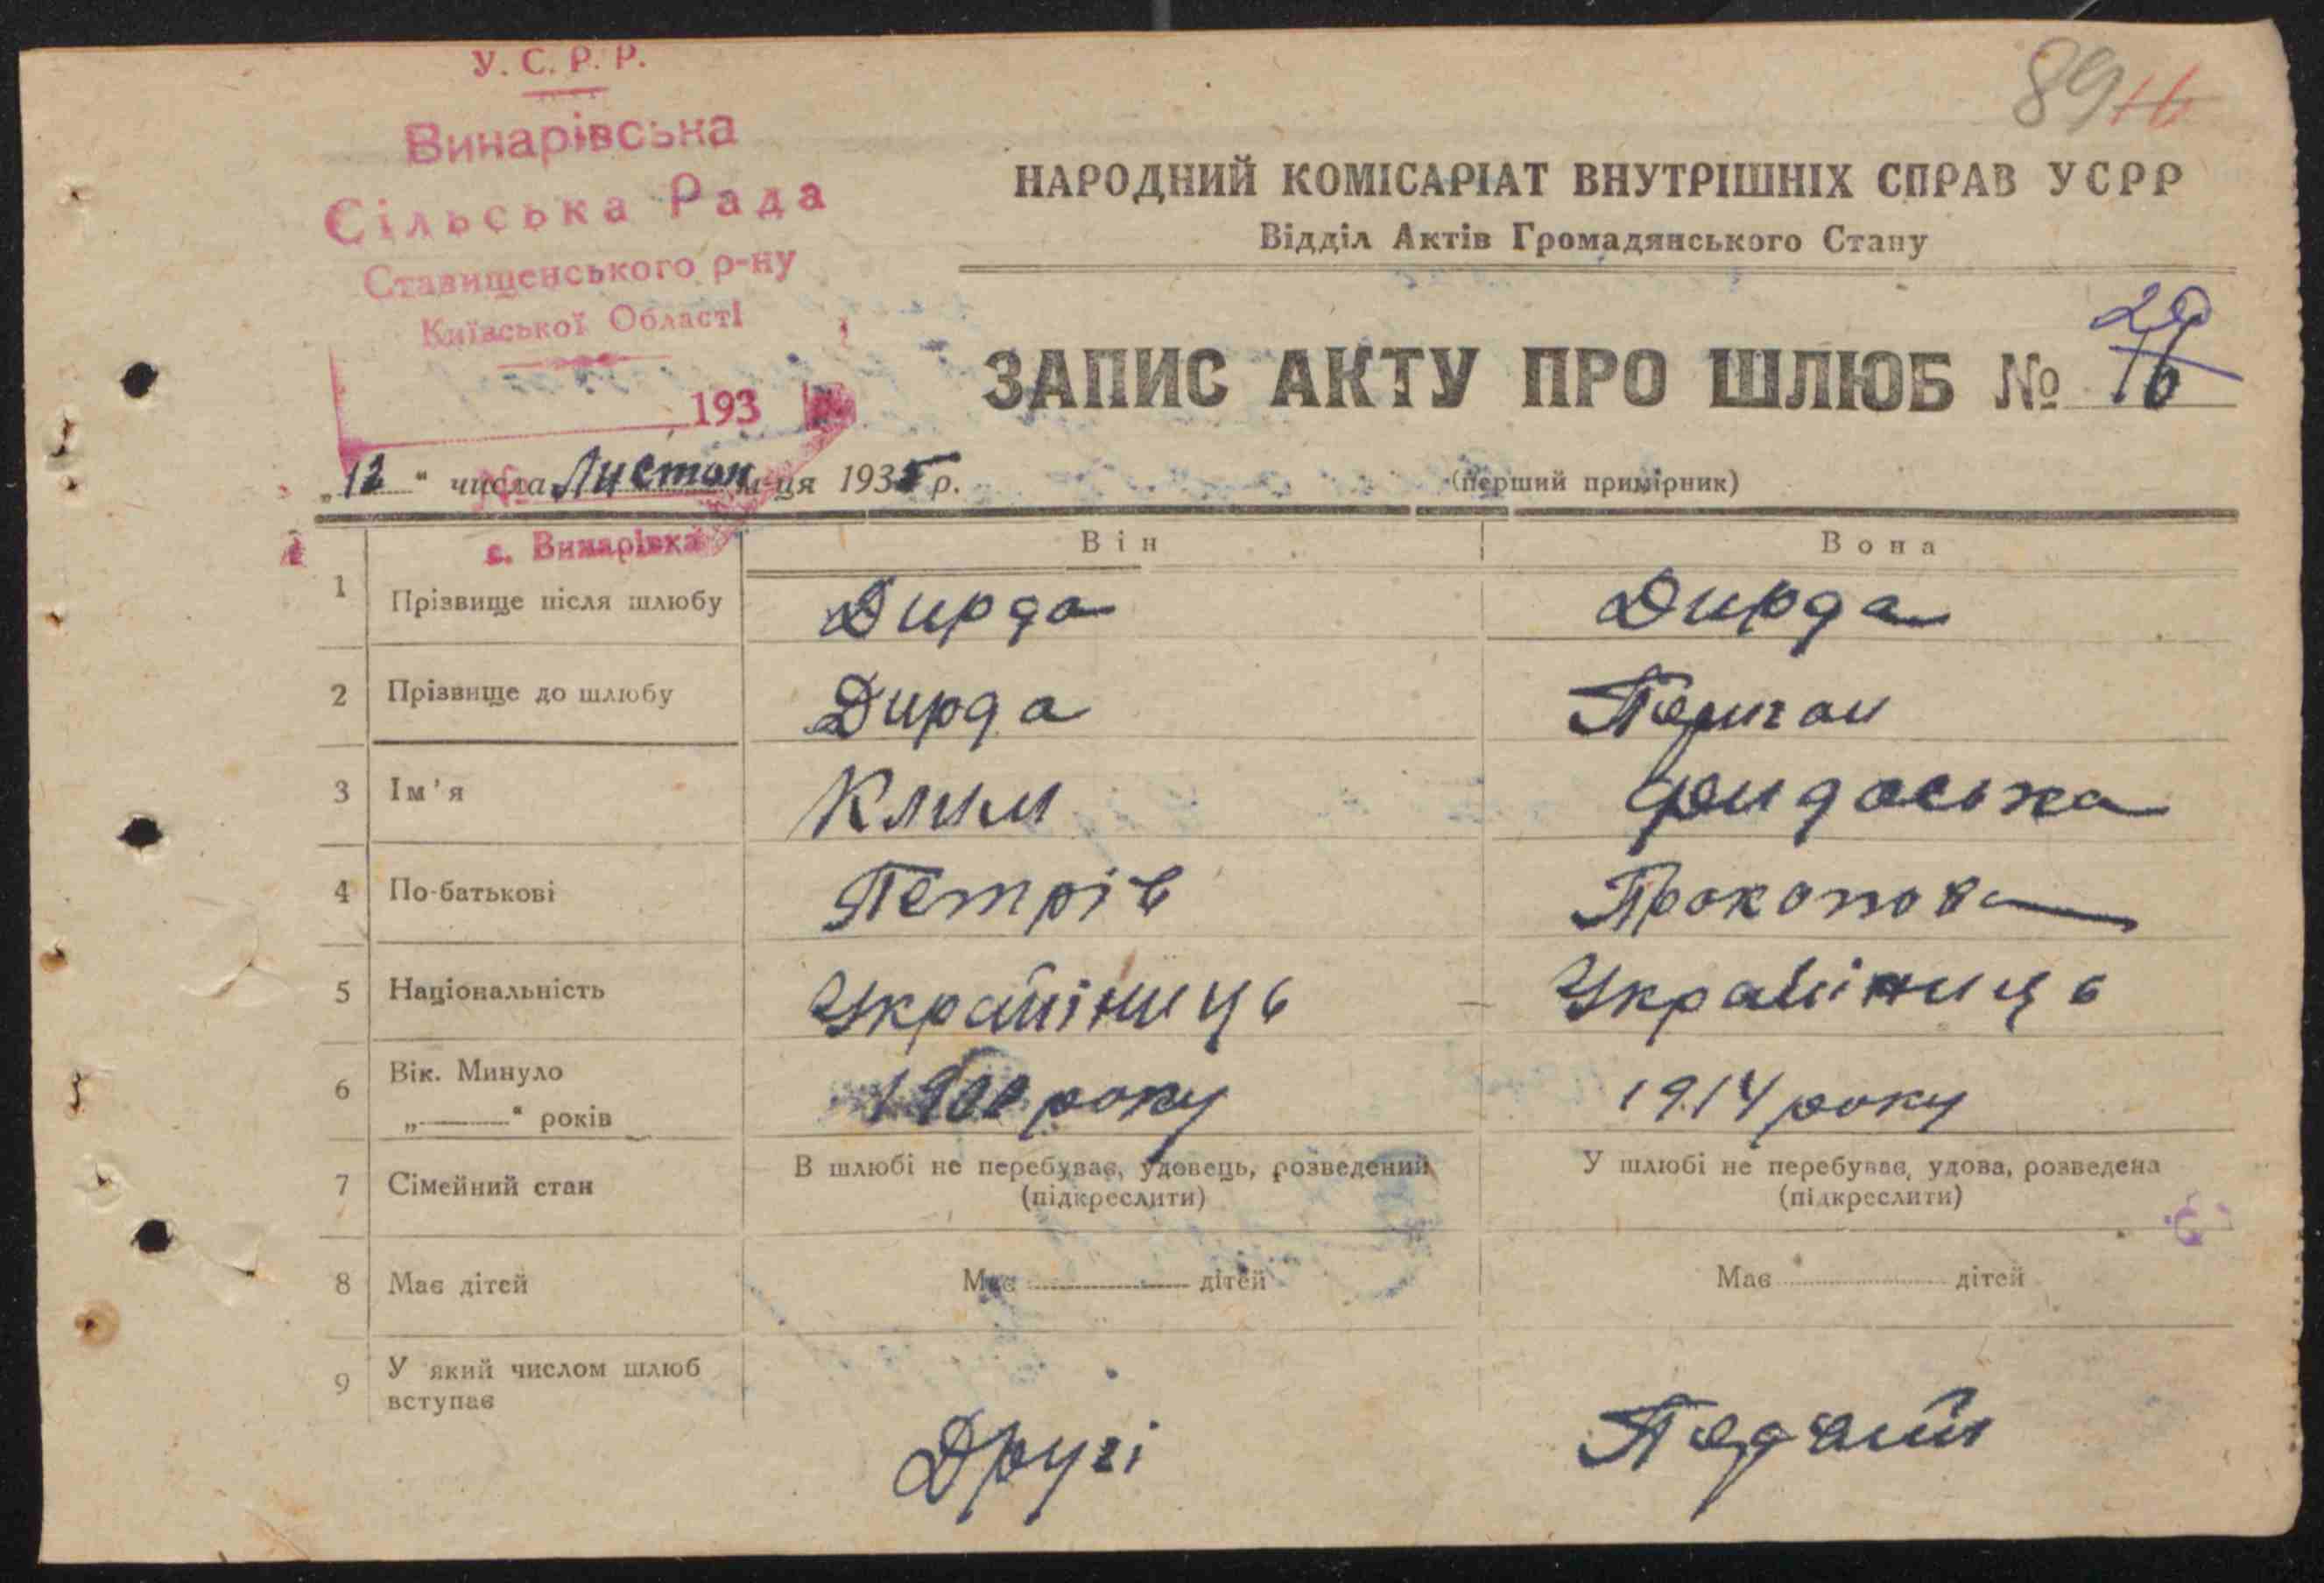 У. С. Р. Р.
Винарівська
Сільська Рада
Ставищенського р-ну
Київської Області
193
№
с. Винарівка
89 16
НАРОДНИЙ КОМІСАРІАТ ВНУТРІШНІХ СПРАВ УСРР
Відділ Актів Громадянського Стану
ЗАПИС АКТУ ПРО ШЛЮБ № 16
„12“ числа Листоп м-ця 1935 р.
(перший примірник)
Він Вона
1 Прізвище після шлюбу Дирда Дирда
2 Прізвище до шлюбу Дирда
3 Ім'я Клим Фидоська
4 По-батькові Петрів Прокопова
5 Національність Украйіниць Украйіниць
6 Вік. Минуло „——“ років 1900 року 1914 року
7 Сімейний стан В шлюбі не перебуває, удовець, розведений (підкреслити) У шлюбі не перебуває, удова, розведена (підкреслити)
8 Має дітей Має ........ дітей Має ........ дітей
9 У який числом шлюб вступає Другі